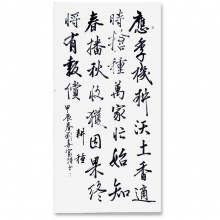 應季機耕沃土香適
時搶種萬家忙始知
春播秋收獲因果終
將有報償
耕種
甲辰春